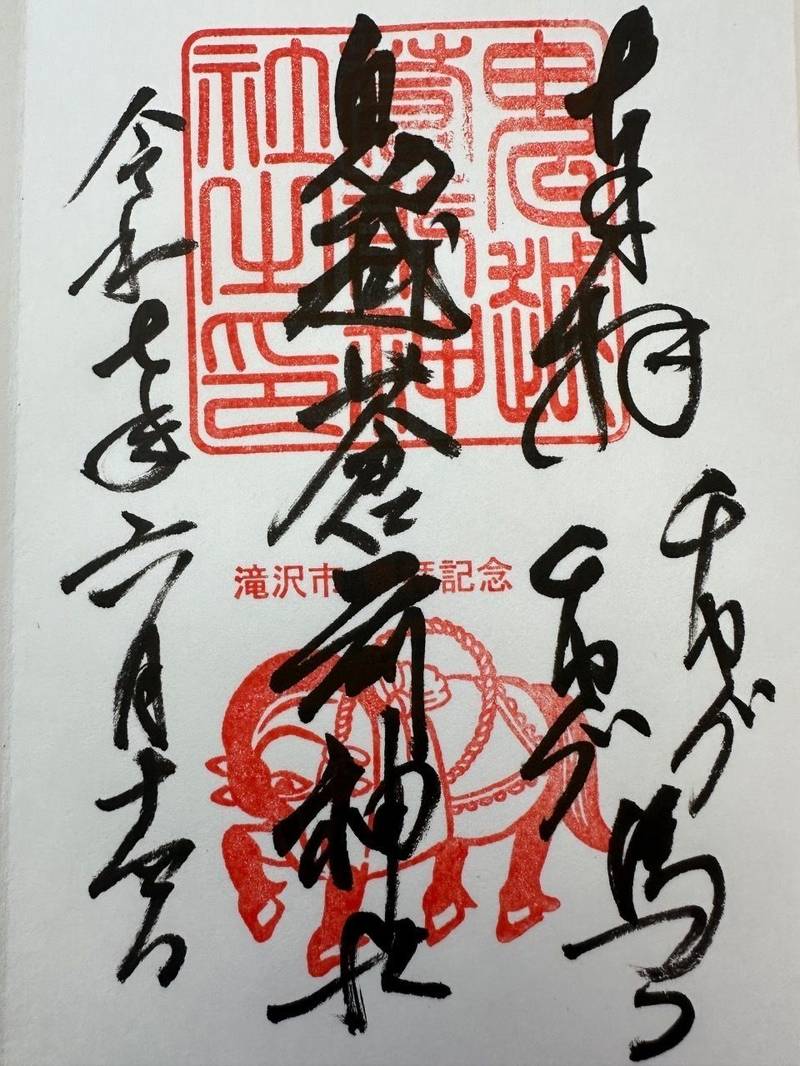 奉拝
チャグ
チャグ
馬コ
鬼越蒼前神社
令和七年六月十四日
鬼越
蒼前神
社之印
滝沢市 記念